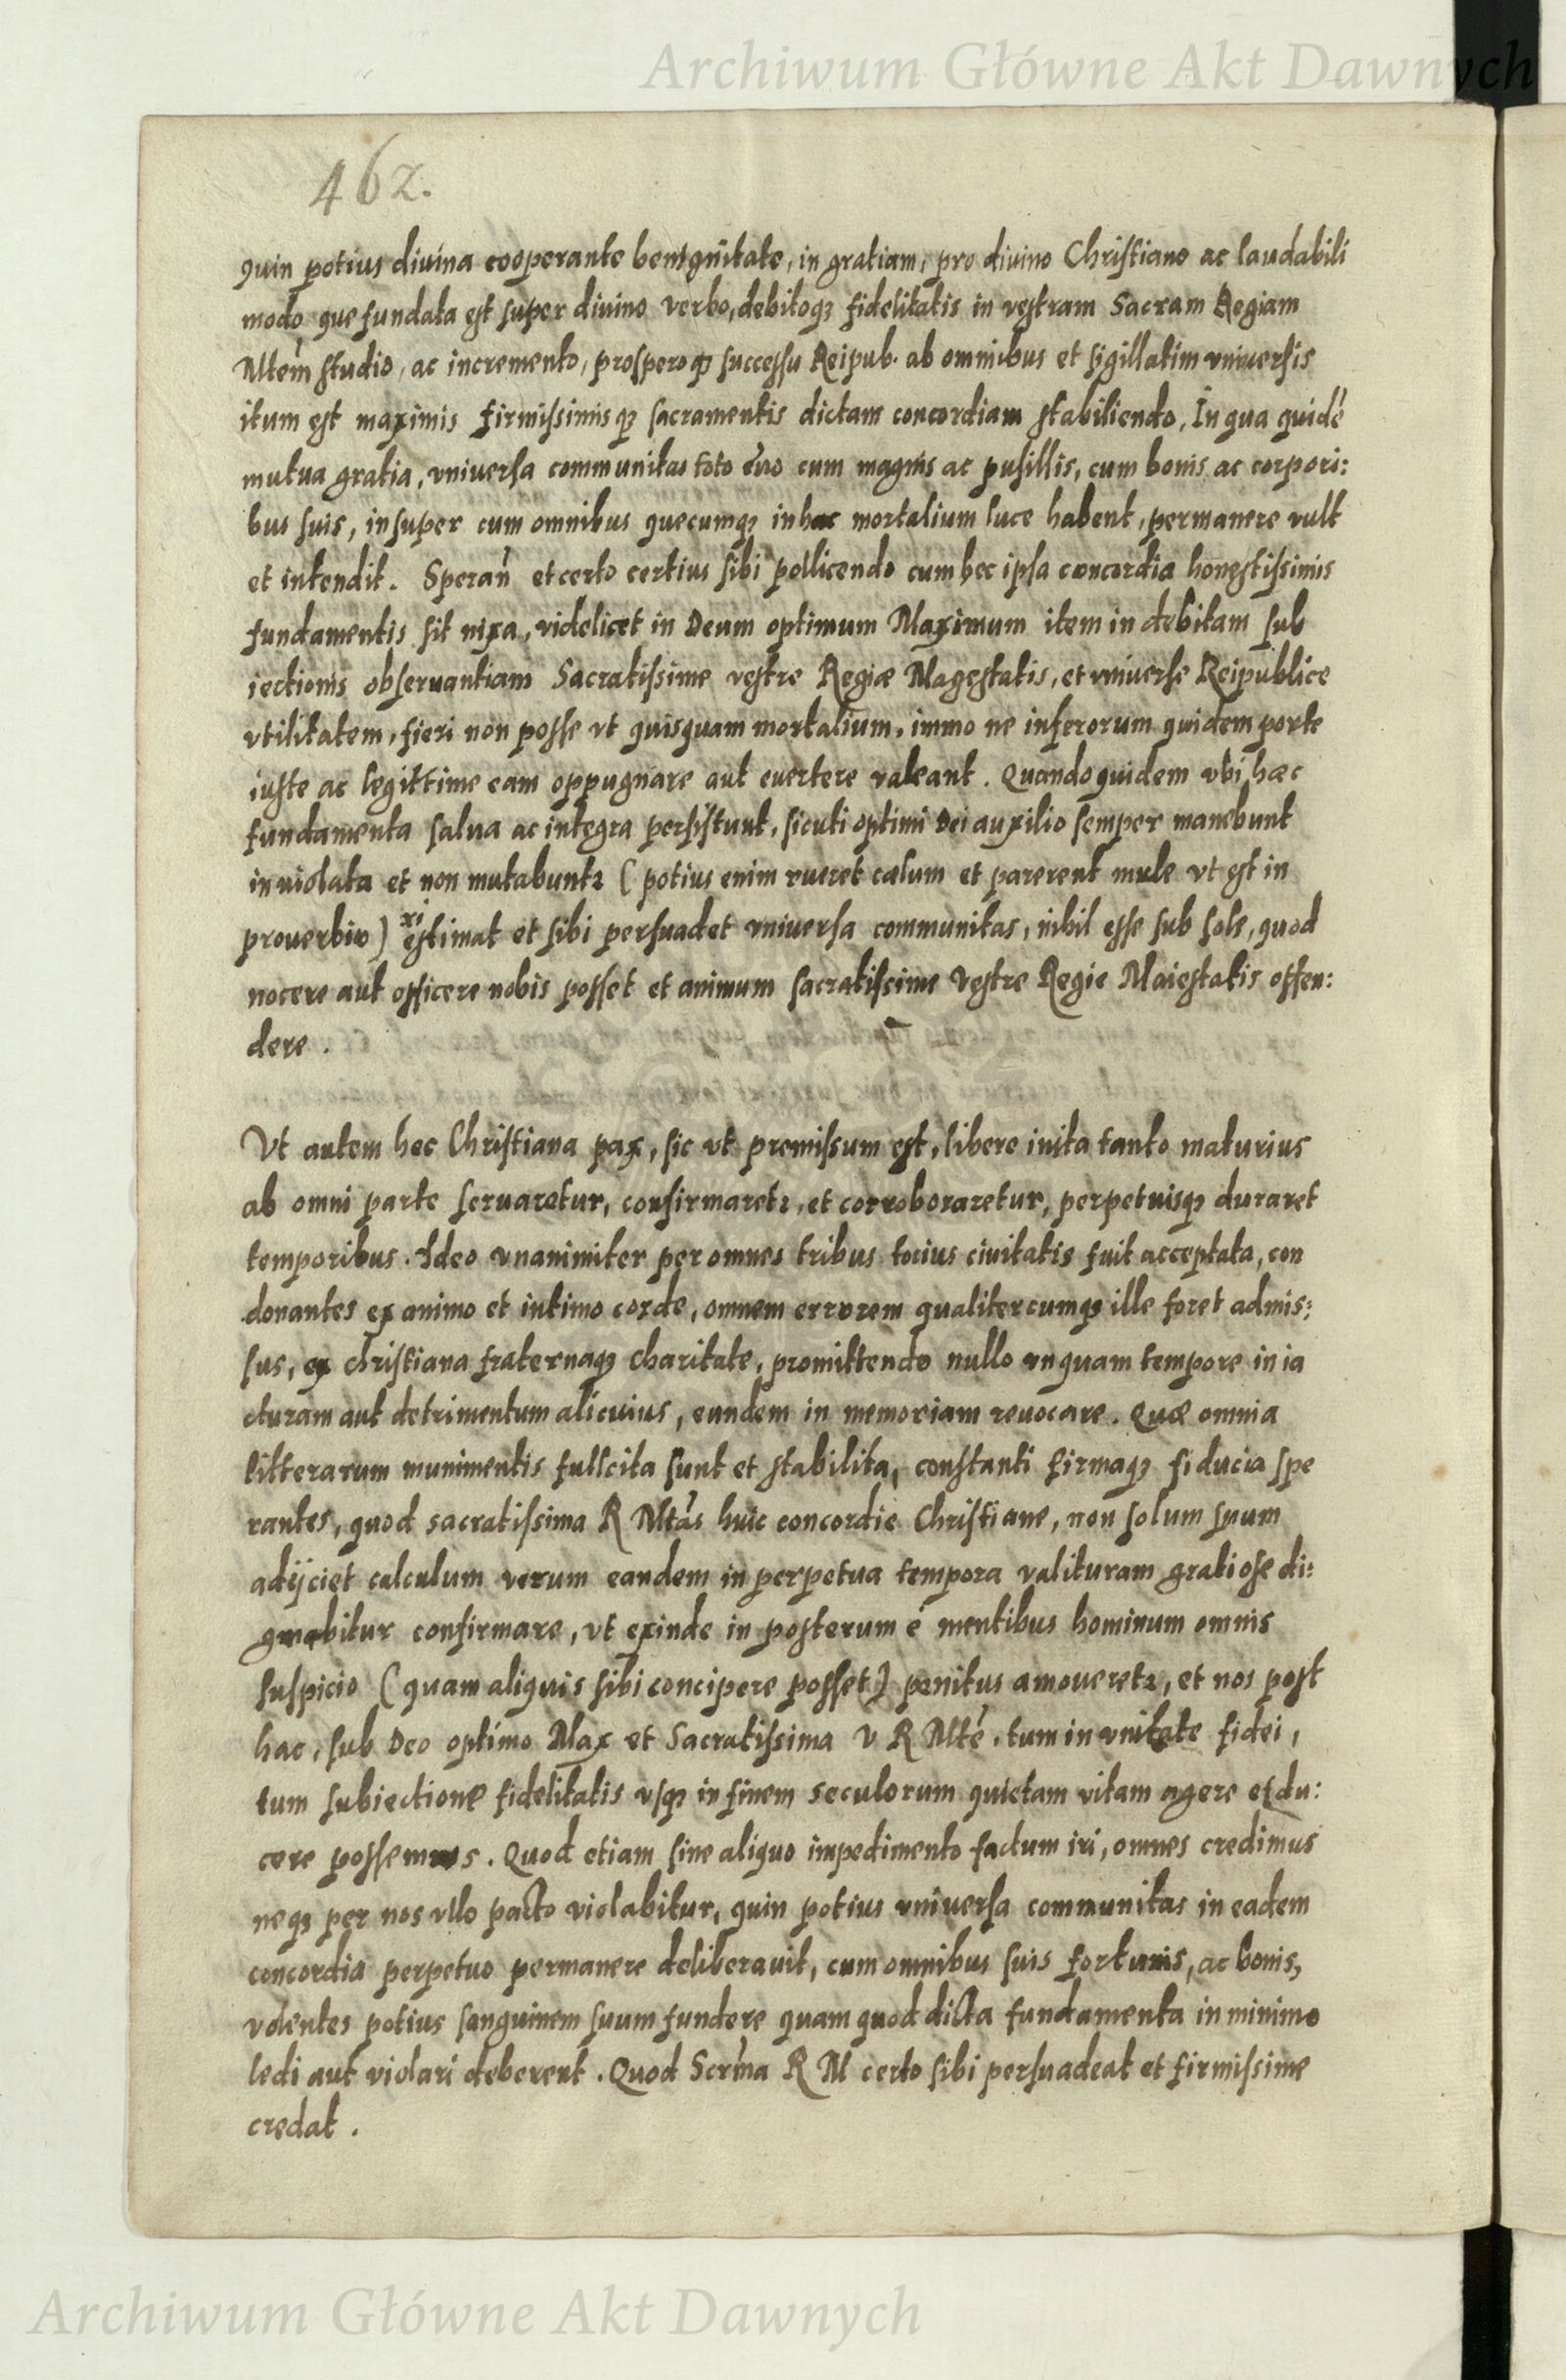 Archiwum Główne Akt Dawnych
462.
quin potius divina cooperante benignitate, in gratiam, pro divino Christiano ac laudabili
modo que fundata est super divino verbo, debitoqꝫ fidelitatis in vestram Sacram Regiam
Mtem studio, ac incremento, prosperoqꝫ successu Reipub. ab omnibus et sigillatim vniuersis
itum est maximis firmissimisqꝫ sacramentis dictam concordiam stabiliendo. In qua quidē
mutua gratia, vniuersa communitas toto cum magnis ac pusillis, cum bonis ac corpori:
bus suis, insuper cum omnibus quecumqꝫ in hac mortalium luce habent, permanere vult
et intendit. Speran̄ et certo certius sibi pollicendo cum hec ipsa concordia honestissimis
fundamentis sit nixa, videlicet in Deum optimum Maximum item in debitam sub
iectionis obseruantiam Sacratissime vestre Regiæ Magestatis, et vniuerse Reipublice
vtilitatem, fieri non posse vt quisquam mortalium, immo ne inferorum quidem porte
iuste ac legittime eam oppugnare aut euertere valeant. Quandoquidem vbi hæc
fundamenta salua ac integra persistunt, sicuti optimi Dei auxilio semper manebunt
inuiolata et non mutabuntꝛ (potius enim rueret cælum et parerent mule vt est in
prouerbio) existimat et sibi persuadet vniuersa communitas, nihil esse sub sole, quod
nocere aut officere nobis posset et animum sacratissime Vestre Regie Maiestatis offen:
dere.
Vt autem hec Christiana pax, sic vt premissum est, libere inita tanto maturius
ab omni parte seruaretur, confirmaretꝛ, et corroboraretur, perpetuisqꝫ duraret
temporibus. Ideo vnanimiter per omnes tribus tocius ciuitatis fuit acceptata, con
donantes ex animo et intimo corde, omnem errorem qualitercumqꝫ ille foret admis:
sus, ex christiana fraternaqꝫ charitate, promittendo nullo vnquam tempore in ia
cturam aut detrimentum alicuius, eundem in memoriam reuocare. Quæ omnia
litterarum munimentis fullcita sunt et stabilita, constanti firmaqꝫ fiducia spe
rantes, quod sacratissima R Mtas huic concordie Christiane, non solum suum
adijciet calculum verum eandem in perpetua tempora valituram gratiose di:
gnabitur confirmare, vt exinde in posterum é mentibus hominum omnis
suspicio (quam aliquis sibi concipere posset) penitus amoueretꝛ, et nos post
hac, sub Deo optimo Max et Sacratissima V R Mte. tum in vnitate fidei,
tum subiectione fidelitatis vsqꝫ in finem seculorum quietam vitam agere et du:
cere possemus. Quod etiam sine aliquo impedimento factum iri, omnes credimus
neqꝫ per nos vllo pacto violabitur, quin potius vniuersa communitas in eadem
concordia perpetuo permanere deliberauit, cum omnibus suis fortunis, ac bonis,
volentes potius sanguinem suum fundere quam quod dicta fundamenta in minimo
ledi aut violari deberent. Quod Serma R M certo sibi persuadeat et firmissime
credat.
Archiwum Główne Akt Dawnych